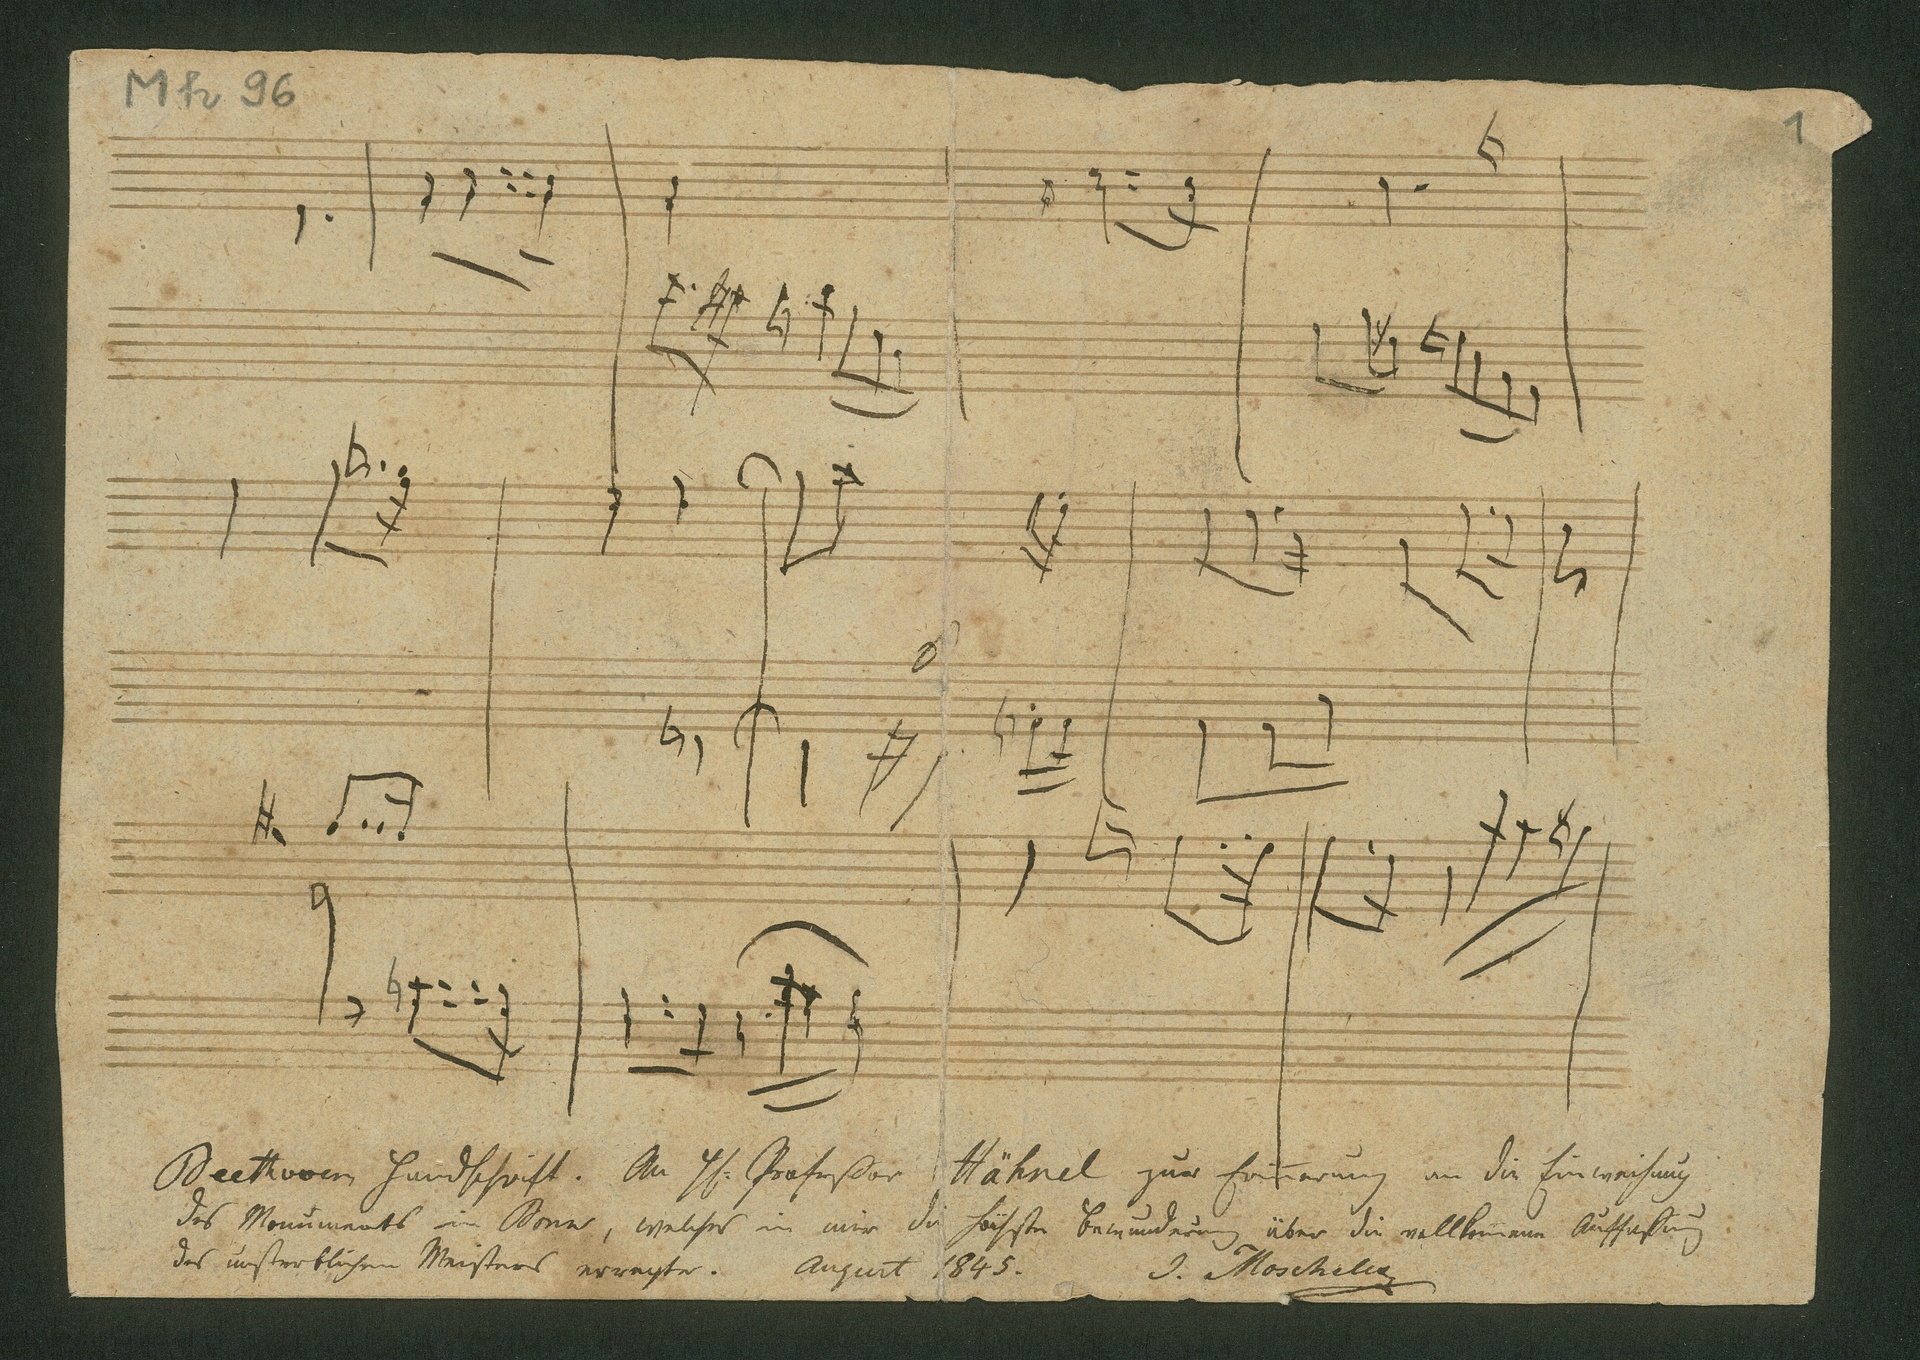 Mh 96
1
Beethoven Handschrift. An H: Professor Hähnel zur Erinnerung an die Einweihung
des Monuments in Bonn, welches in mir die höchste Bewunderung über die vollkomene Auffassung
des unsterblichen Meisters erregte. August 1845. I. Moscheles